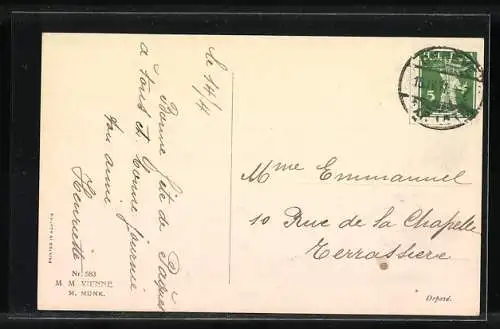 le 14/4
Bonne fête de Pâques
à tous et bonne journée
ton amie
Henriette
Nr. 583
M. M. VIENNE
M. MUNK.
Mme Emmanuel
10 Rue de la Chapelle
Terrassière
Déposé.
HELVETIA
5